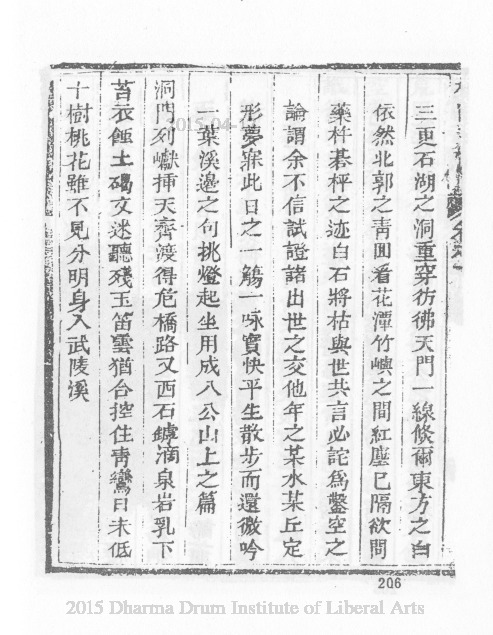 三更石湖之洞重穿彷彿天門一線倐爾東方之白
依然北郭之青回看花潭竹嶼之間紅塵已隔欲問
藥杵碁枰之迹白石將枯與世共言必詫為鑿空之
論謂余不信試證諸出世之交他年之某水某丘定
形夢寐此日之一觴一咏實快平生散步而還微吟
一葉溪邊之句挑燈起坐用成八公山上之篇
洞門列巘揷天齊渡得危橋路又西石罅滴泉岩乳下
苔衣蝕土碣文迷聽殘玉笛雲猶合控住青鸞日未低
十樹桃花雖不見分明身入武陵溪
206
2015-04-
2015 Dharma Drum Institute of Liberal Arts